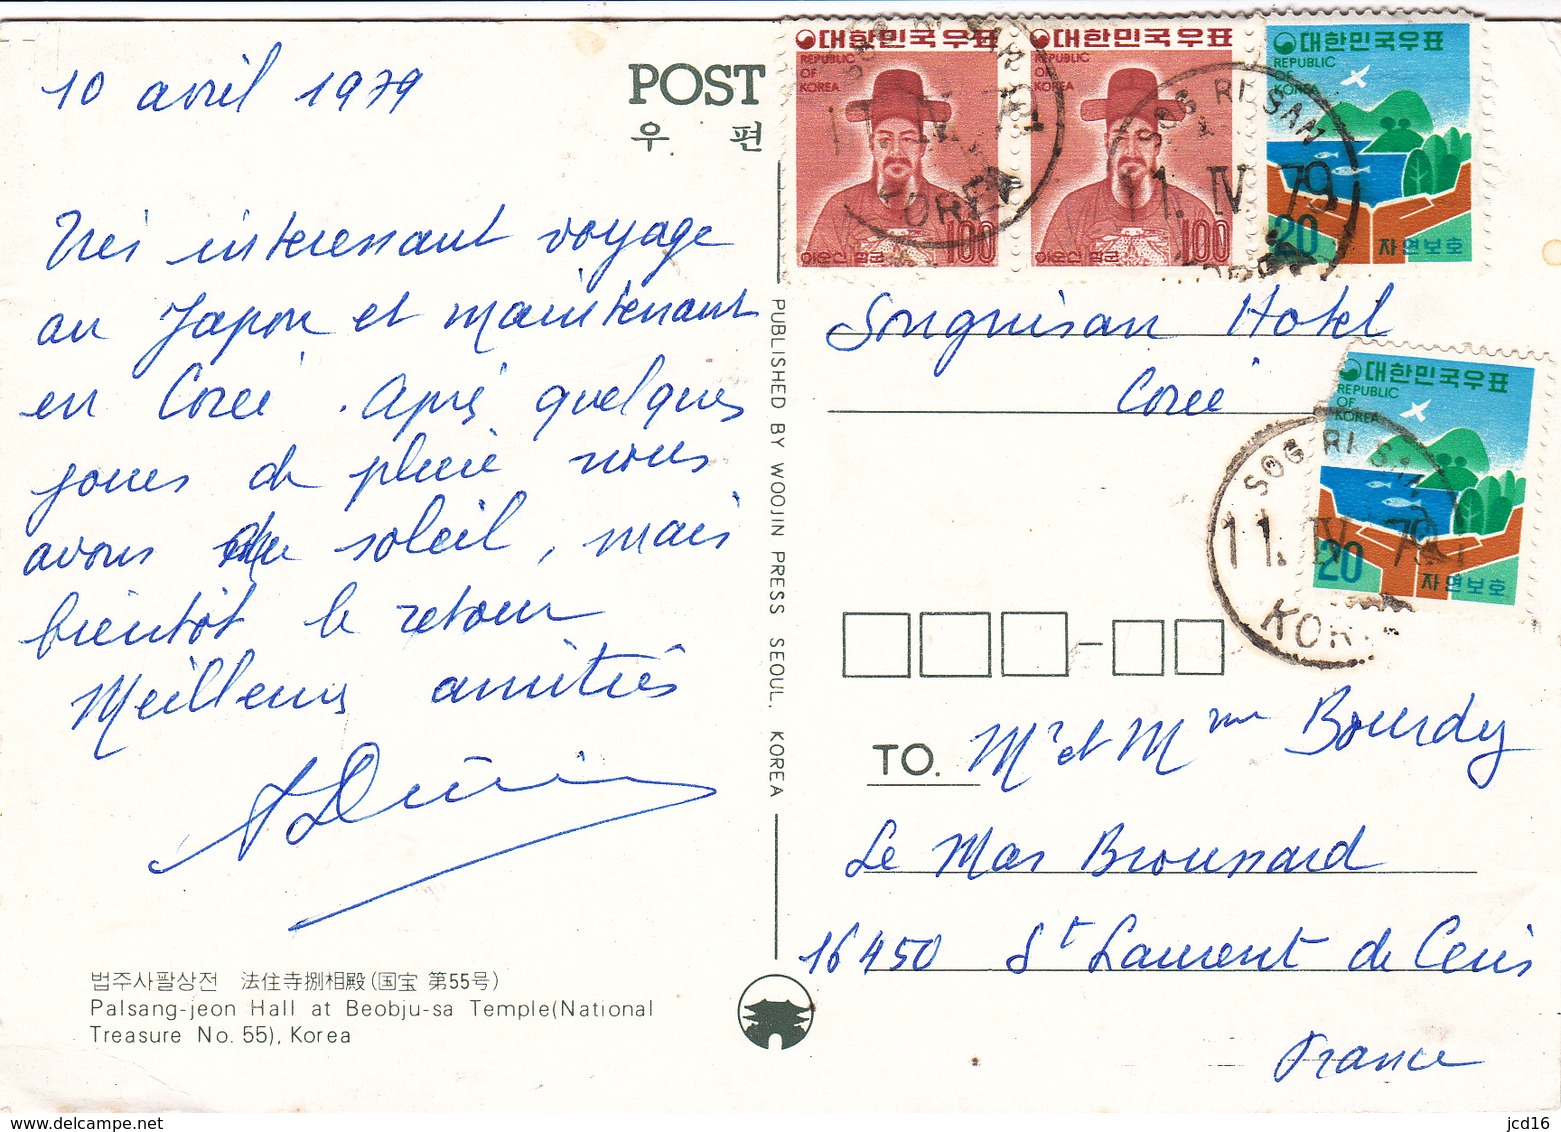 10 avril 1979
POST
우 편
Très interessant voyage
au Japon et maintenant
en Corée. Après quelques
jours de pluie nous
avons du soleil, mais
bientôt le retour
Meilleures amitiés
법주사팔상전 法住寺捌相殿(国宝 第55号)
Palsang-jeon Hall at Beobju-sa Temple(National
Treasure No. 55), Korea
PUBLISHED BY WOOJIN PRESS SEOUL, KOREA
대한민국우표
REPUBLIC
OF
KOREA
이순신 장군
100
대한민국우표
REPUBLIC
OF
KOREA
이순신 장군
100
대한민국우표
REPUBLIC
OF
KOREA
20
자연보호
SOG RI SAN
11. IV 79
KOREA
SOG RI SAN
11. IV 79
KOREA
Songnisan Hotel
Corée
대한민국우표
REPUBLIC
OF
KOREA
20
자연보호
SOG RI SAN
11. IV 79
KOREA
TO. Mr et Mme Bourdy
Le Mas Broussard
16450 St Laurent de Ceris
France
www.delcampe.net
jcd16